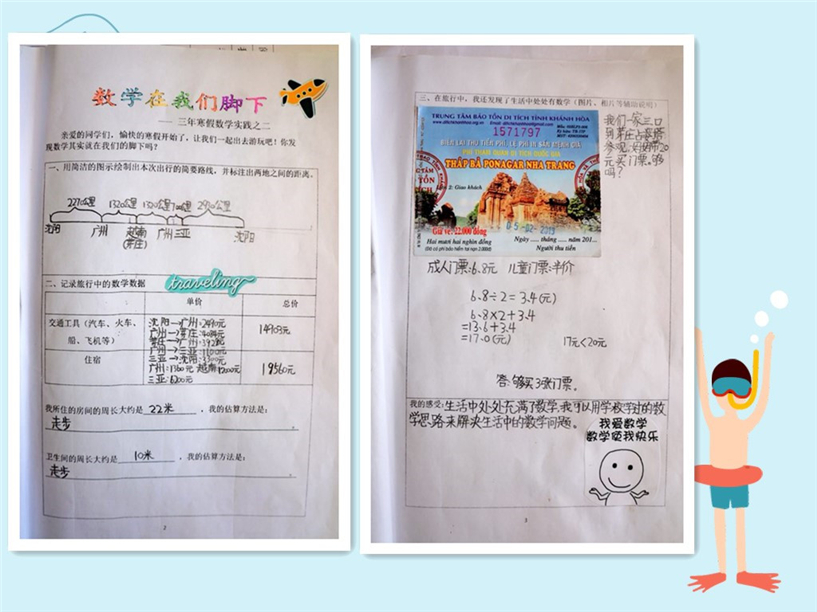 数学在我们脚下
—— 三年寒假数学实践之二
亲爱的同学们，愉快的寒假开始了，让我们一起出去游玩吧！你发
现数学其实就在我们的脚下吗？
一、用简洁的图示绘制出本次出行的简要路线，并标注出两地之间的距离。
2270公里 1320公里 1320公里
沈阳 广州 越南 广州 三亚 沈阳
(芽庄)
二、记录旅行中的数学数据
traveling
单价 总价
交通工具（汽车、火车、
船、飞机等）
沈阳→广州:2490元
广州→芽庄:4084元
芽庄→广州:3928元
三亚→沈阳
住宿
19560元
三亚:6200元
我所住的房间的周长大约是 22米 ，我的估算方法是：
走步 。
卫生间的周长大约是 10米 ，我的估算方法是：
走步 。
2
三、在旅行中，我还发现了生活中处处有数学（图片、相片等辅助说明）
TRUNG TÂM BẢO TỒN DI TÍCH TỈNH KHÁNH HÒA
1571797
BIÊN LAI THU TIỀN PHÍ, LỆ PHÍ
PHÍ THAM QUAN DI TÍCH QUỐC GIA
THÁP BÀ PONAGAR NHA TRANG
Liên 2: Giao khách
05-02-2019
Giá vé: 22.000 đồng
Hai mươi hai nghìn đồng
Ngày .... tháng ..... năm 201...
Người thu tiền
我们一家三口
到芽庄占婆塔
参观,妈妈带20
元买门票。够
吗？
成人门票:6.8元 儿童门票:半价
6.8÷2=3.4(元)
6.8×2+3.4
=13.6+3.4
=17.0(元) 17元<20元
答:够买3张门票。
我的感受:生活中处处充满了数学,我可以用学校学过的数
学思路来解决生活中的数学问题。
我爱数学
数学使我快乐
3